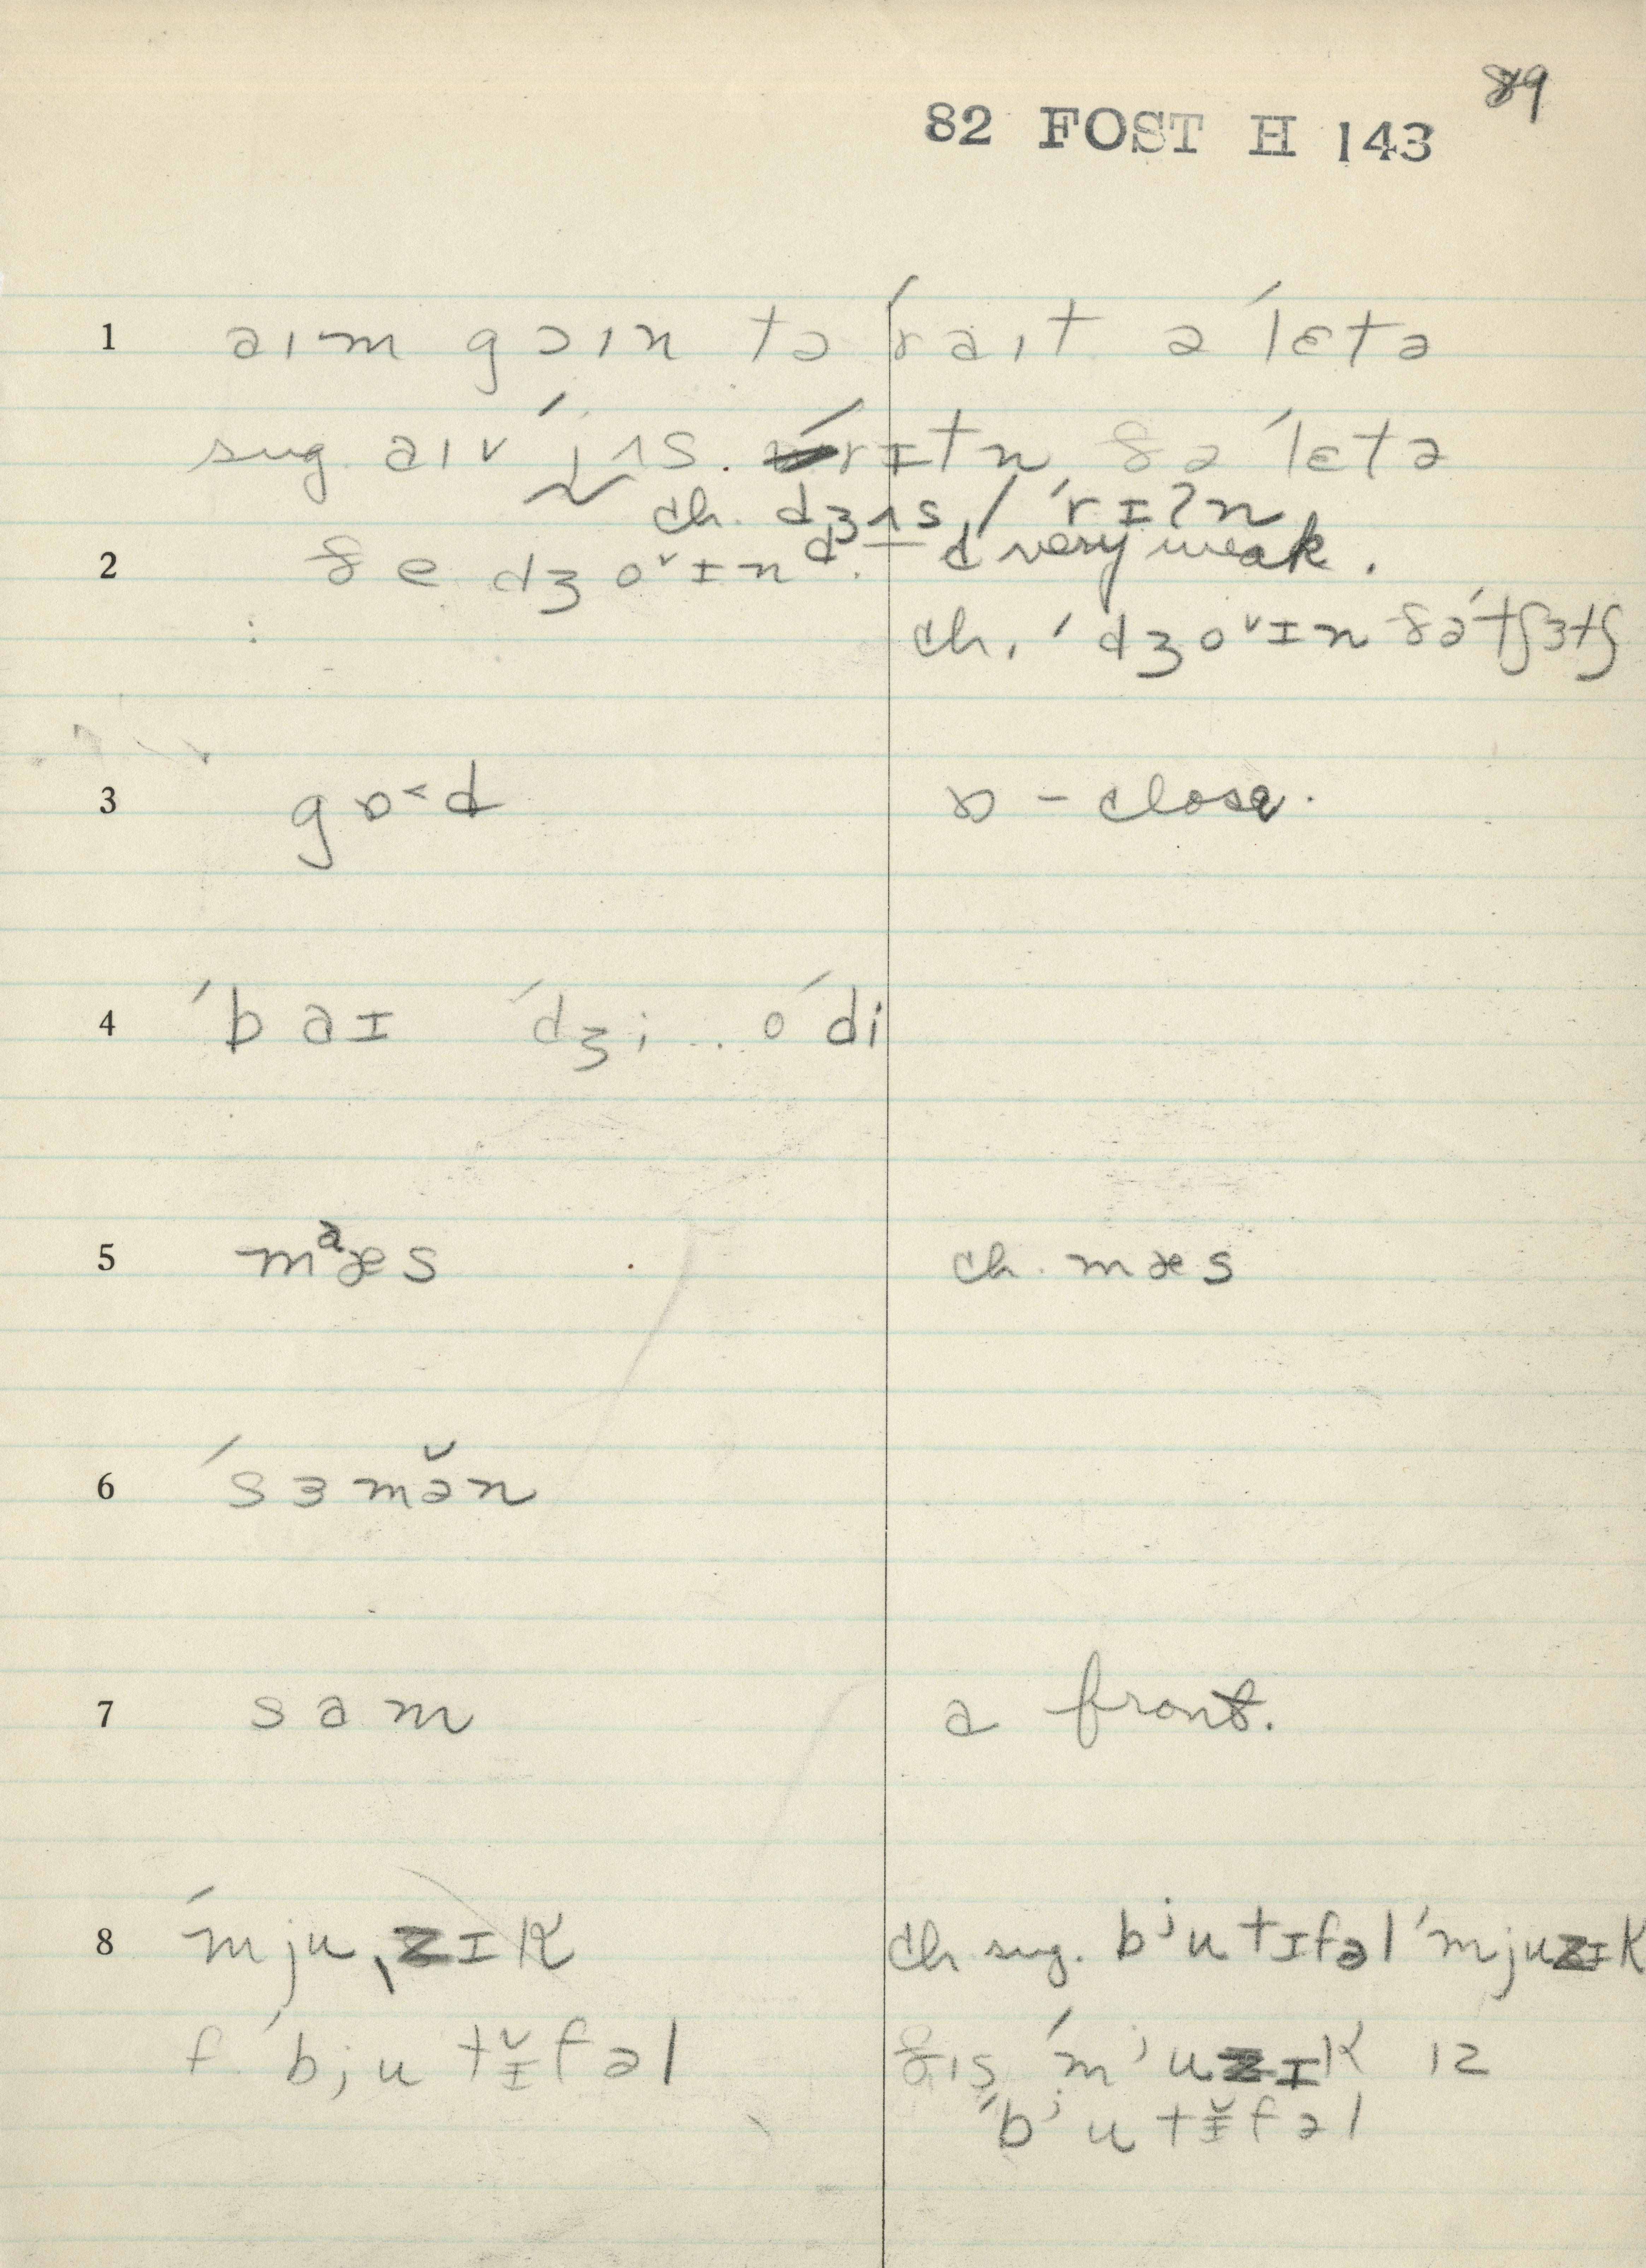 89
82 FOST H 143
1 aɪm gɔɪn tə ˈraɪt ə ˈlɛtə
sug. aɪv ˈjʌs. ˈrɪtn ðə ˈlɛtə
ch. dʒʌs / ˈrɪʔn
2 ðe dʒoˇɪnᵈ. d — d very weak.
ch. ˈdʒoˇɪn ðəˈtʃɜtʃ
3 gɒ˂d ɒ – close.
4 ˈbaɪ ˈdʒi .. oˈdi
5 mᵃæs ch. mæs
6 ˈsɜmə̆n
7 sam a front.
8 ˈmjuˌzɪk ch sug. bʲutɪfəl ˈmjuzɪk
f. ˈbjutɪ̆fəl ðɪs ˈmʲuzɪk ɪz
ˈbʲutɪ̆fəl